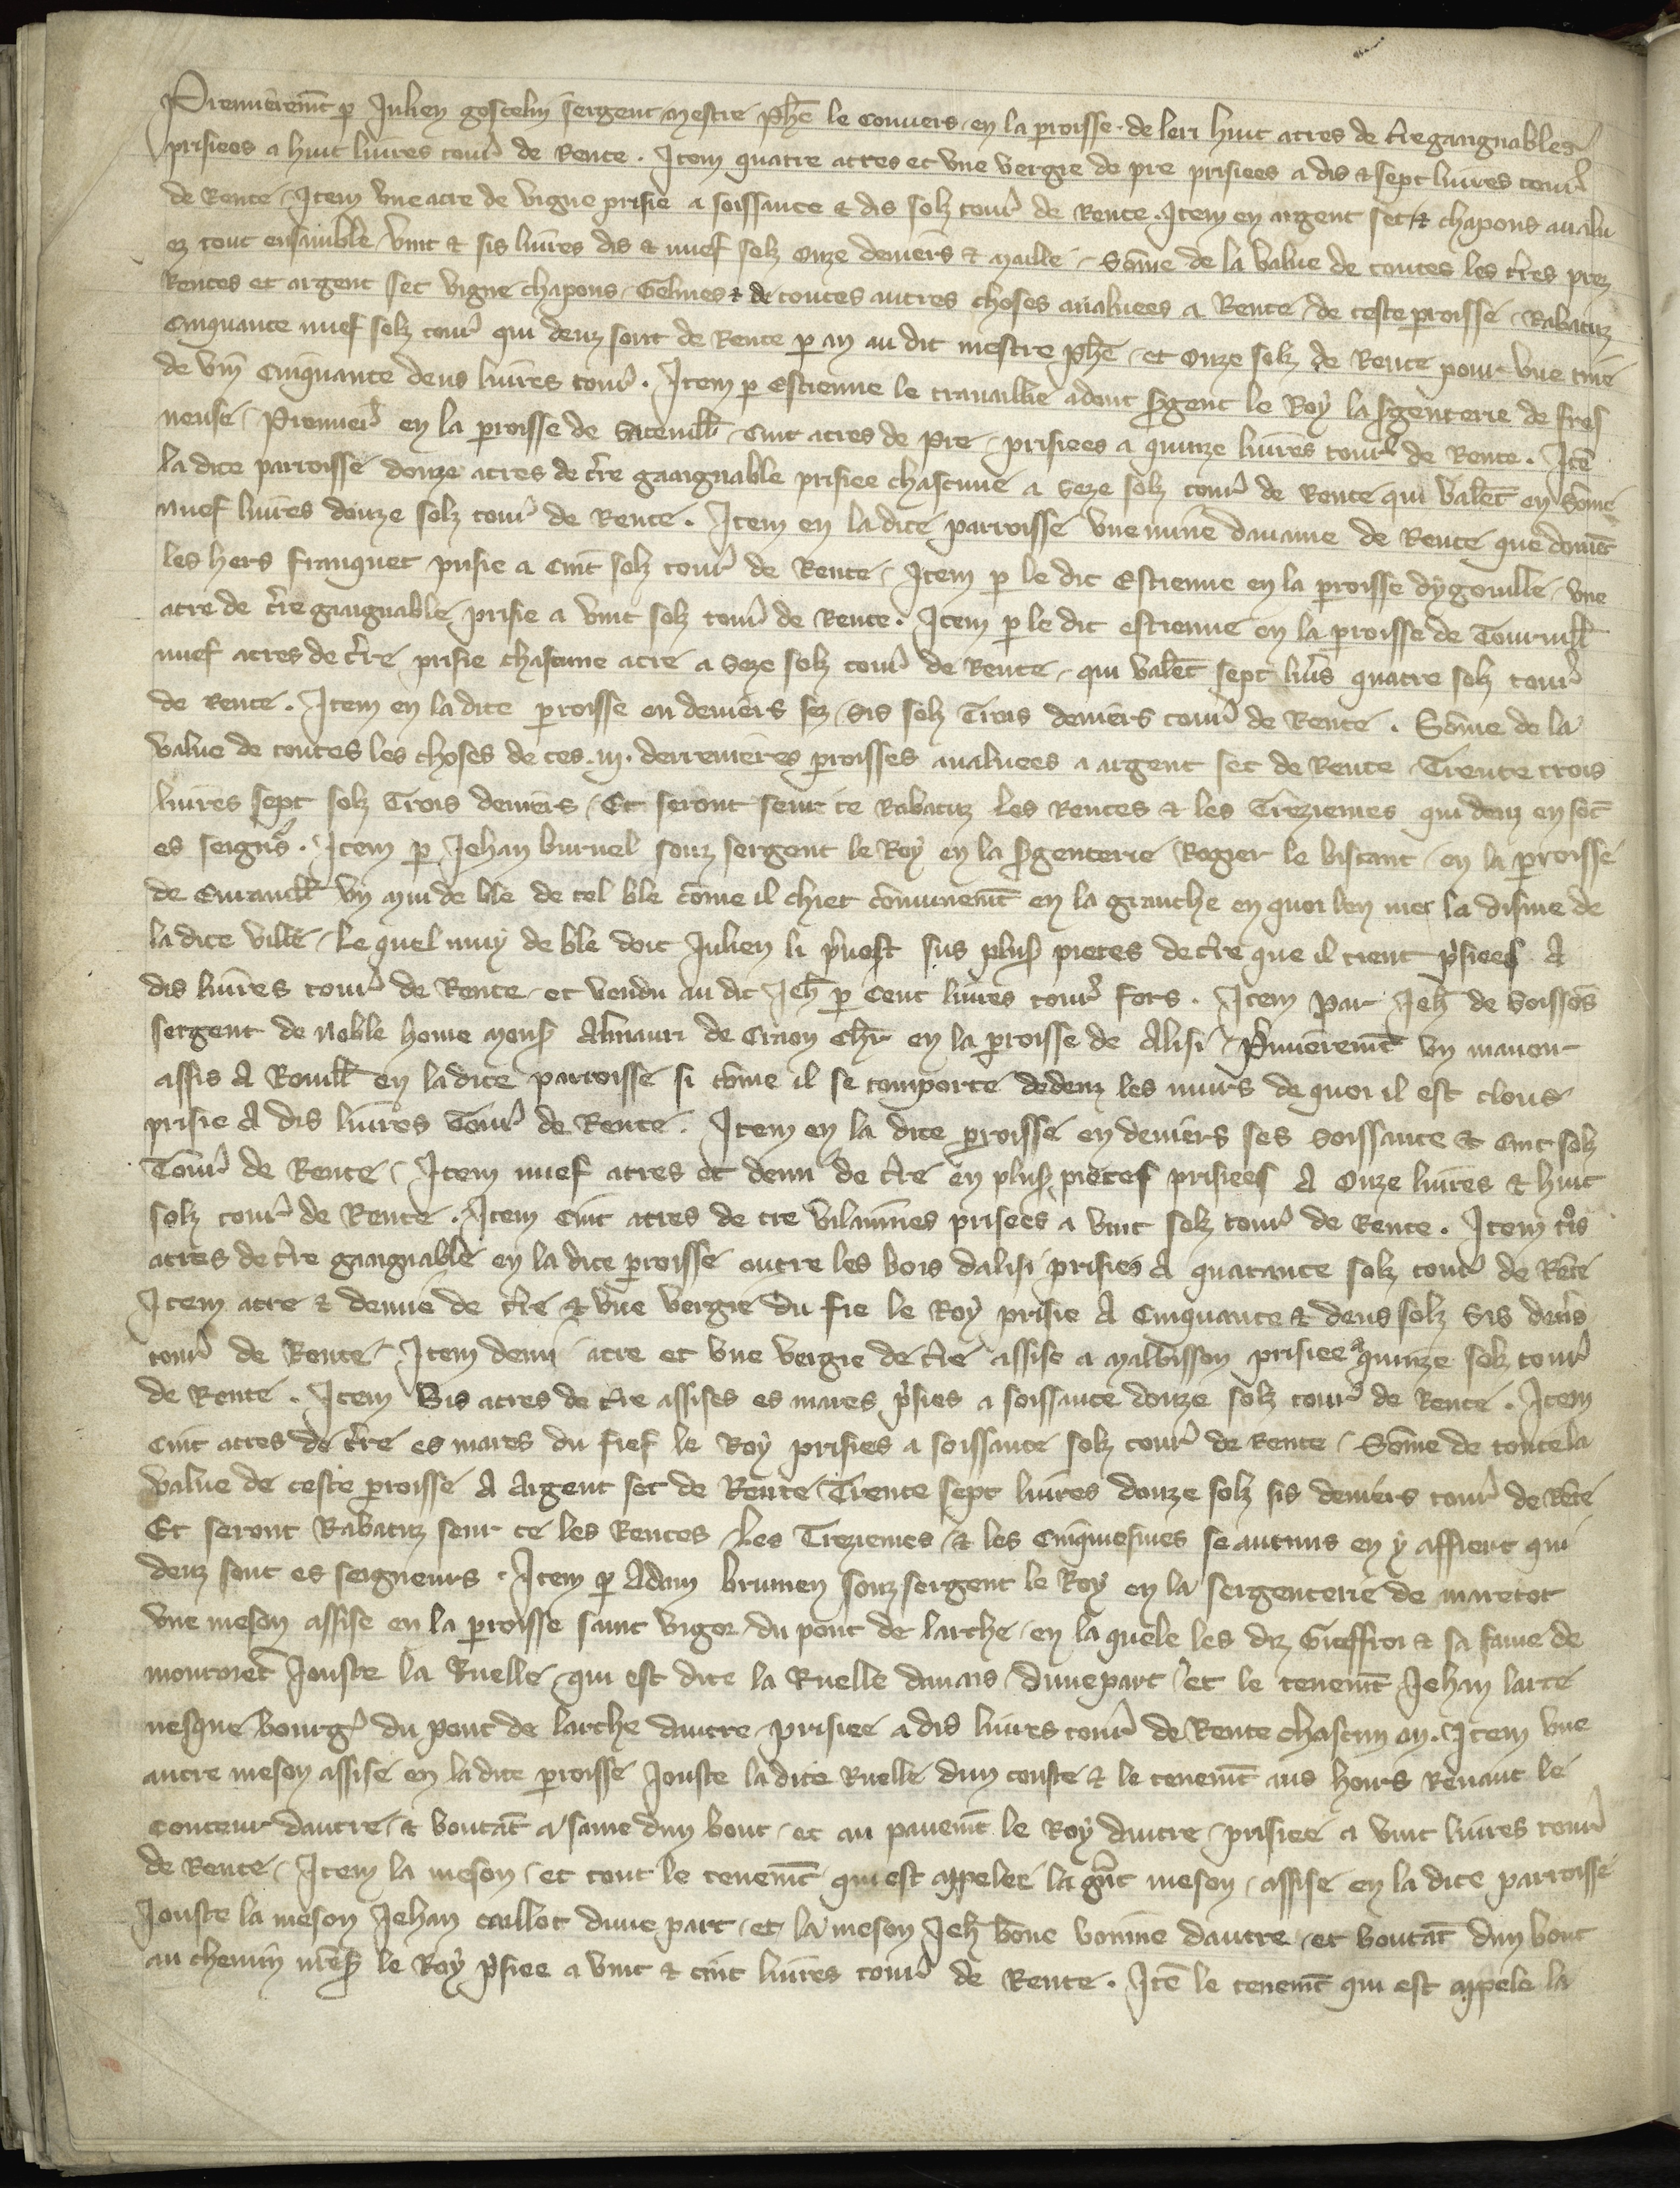 Premierem̄t p Julien goscelin sergent mestre Ph̄e le Convers en la p̄roisse de leri huit acres de t̄re gaaignables
prisiees a huit livres tour̉ de Rente . Item quatre acres et une vergie de pre prisiees a dis & sept livres tour̉
de Rente / Item une acre de vigne prisie a soissante & dis solz tour̉ de Rente . Item en argent sec & chapons avalu
ez tout ensamble vint & sis livres dis & nuef solz onze deniers & maille / Som̄e de la value de toutes les t̄res prez
Rentes et argent sec vigne chapons Gelines & de toutes autres choses avaluees a Rente de ceste p̄roisse Rabatuz
Cinquante nuef solz tour̉ qui deuz sont de Rente p an au dit mestre Ph̄e et Onze solz de Rente pour une
de vin Cinquante deus livres tour̉ . Item p Estienne le travaillie adonc s̄gent le Roy la s̄genterie de fres
neuse / Premier̉ en la p̄roisse de Cinc acres de pre prisiees a quinze livres tour̉ de Rente . Itē
la dite parroisse douze acres de t̄re gaaignable prisiee chascune a seze solz tour̉ de Rente qui valēt en som̄e
nuef livres douze solz tour̉ de Rente . Item en la dite parroisse une mine davaine de Rente que doivēt
les hers franquet prisie a Cinc solz tour̉ de Rente / Item p le dit Estienne en la p̄roisse dygoville une
acre de t̄re gaaignable prisie a vint solz tour̉ de Rente . Item p le dit estienne en la p̄roisse de Tourvill̄
nuef acres de t̄re prisie chascune acre a seze solz tour̉ de Rente qui valēt sept livr̄s quatre solz tour̉
de Rente . Item en la dite p̄roisse en deniers sez sis solz Trois deniers tour̉ de Rente . Som̄e de la
value de toutes les choses de ces .iij. derrenieres p̄roisses avaluees a argent sec de Rente Trente trois
livres sept solz Trois deniers / Et seront seur ce Rabatuz les Rentes & les Treziemes qui deuz en sōt
es seign̄rs . Item p Jehan burnel souz sergent le Roy en la s̄genterie Roger le bistaut en la p̄roisse
de un mui de ble de tel ble com̄e il chiet com̄unem̄t en la granche en quoi len met la disme de
la dite ville / le quel muy de ble doit Julien li p̄vost sus plus̄ pieces de t̄re que il tient p̄siees A
dis livres tour̉ de Rente et vendu au dit Jeh̄ p Cent livres tour̉ fors . Item Par Jeh̄ de Soissōs
sergent de Noble home Mons̄ Almauri de Craon Ch̄r en la p̄roisse de Alisi P̄mierem̄t un manoir
assis A Rouill̄ en la dite parroisse si cōme il se comporte dedenz les murs de quoi il est clous
prisie A dis livres Tour̉ de Rente . Item en la dite p̄roisse en deniers ses soissante & cinc solz
Tour̉ de Rente / Item nuef acres et demi de t̄re en plus̄ pieces prisiees A Onze livres & huit
solz tour̉ de Rente . Item Cinc acres de t̄re vilaines prisees a vint solz tour̉ de Rente . Item t̊is
acres de t̄re gaaignable en la dite p̄roisse outre les bois dalisi prisies A quarante solz tour̉ de Rēte
Item acre & demie de t̄re & une vergie du fie le Roy prisie A Cinquante & deus solz sis den̄rs
tour̉ de Rente Item demi acre et une vergie de t̄re assise a Malbisson prisiee a quinze solz tour̉
de Rente . Item Sis acres de t̄re assises es mares p̄sies a soissante douze solz tour̉ de Rente . Item
Cinc acres de t̄re es mares du fief le Roy prisies a soissante solz tour̉ de Rente / Som̄e de toute la
value de ceste p̄roisse A Argent sec de Rente Trente sept livres douze solz sis deniers tour̉ de Rēte
Et seront Rabatuz seur ce les Rentes les Treziemes & les Cinquiesmes se aucuns en y affiert qui
deuz sont es seigneurs . Item p Adam brumen souz sergent le Roy en la sergenterie de maretot
une meson assise en la p̄roisse saint vigor du pont de larche en la quele les diz Gieffroi & sa fame de
mouroiēt Jouste la Ruelle qui est dite la Ruelle danais dune part et le tenem̄t Jehan larce
vesque bourg̉ du pont de larche dautre prisiee a dis livres tour̉ de Rente chascun an . Item une
autre meson assise en la dite p̄roisse Jouste la dite Ruelle dun couste & le tenem̄t aus hoirs Renaut le
Conteur dautre & boutāt a saine dun bout et au pavem̄t le Roy dautre prisiee a vint livres tour̉
de Rente / Item la meson et tout le tenem̄t qui est appelee la gr̄nt meson assise en la dite parroisse
Jouste la meson Jehan caillot dune part et la meson Jeh̄ bōne vonine dautre et boutāt dun bout
au chemin nr̄e s̄ le Roy p̄siee a vint & cinc livres tour̉ de Rente . Itē le tenem̄t qui est appele la